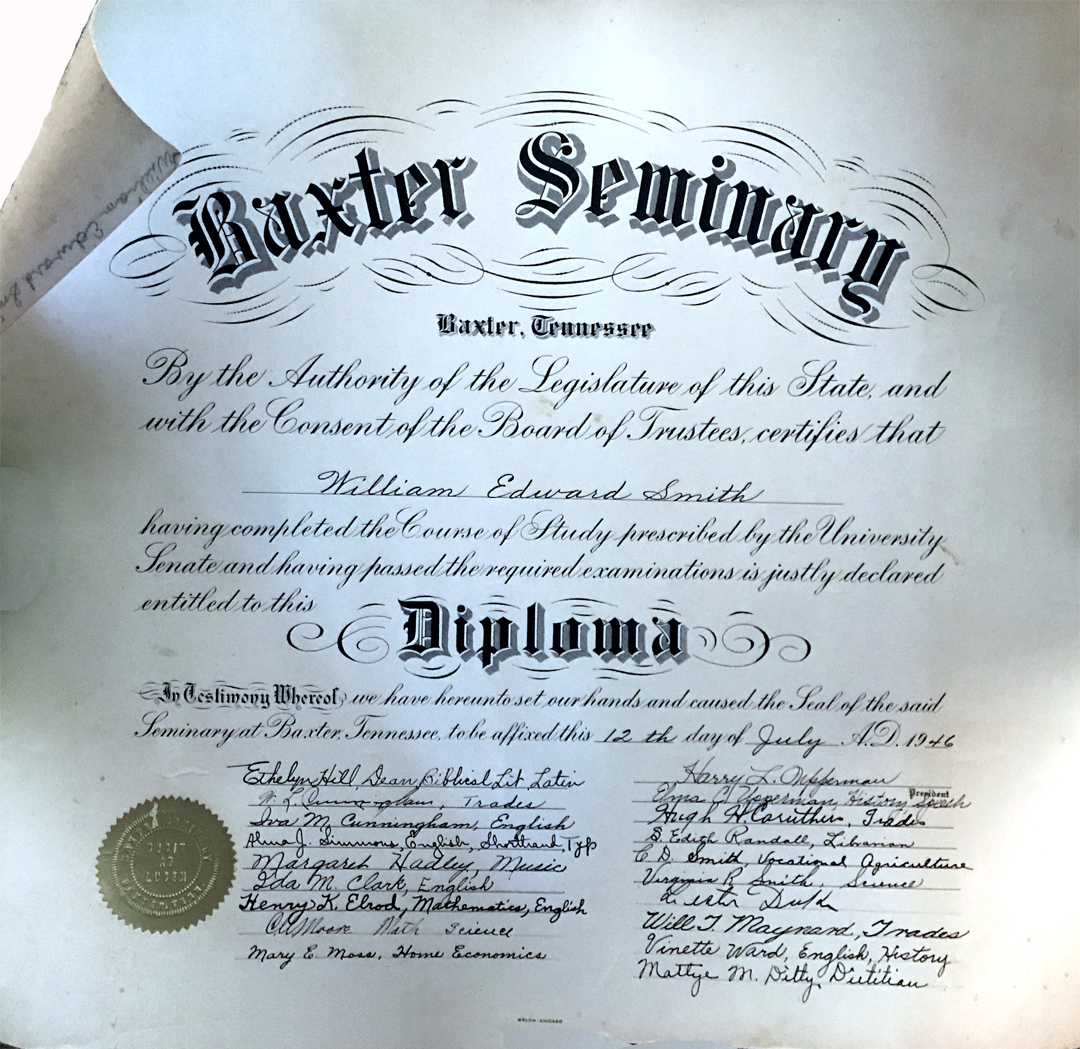 William Edward
Baxter Seminary
Baxter, Tennessee
By the Authority of the Legislature of this State, and
with the Consent of the Board of Trustees, certifies that
William Edward Smith
having completed the Course of Study prescribed by the University
Senate and having passed the required examinations is justly declared
entitled to this
Diploma
In Testimony Whereof, we have hereunto set our hands and caused the Seal of the said
Seminary at Baxter, Tennessee, to be affixed this 12 th day of July A.D. 1946
Ethelyn Hill, Dean, Biblical Lit, Latin
Cunningham, Trades
Iva M. Cunningham, English
Alma J. Simmons, English, Shorthand, Typ
Margaret Hadley, Music
Ida M. Clark, English
Henry K. Elrod, Mathematics, English
Moore Math Science
Mary E. Moss, Home Economics
Harry L. Upperman
President
Elma C. Upperman, History Speech
Hugh H. Caruthers, Trades
S. Edith Randall, Librarian
C. D. Smith, Vocational Agriculture
Virginia R. Smith, Science
Will T. Maynard, Trades
Vinette Ward, English, History
Mattye M. Ditty, Dietitian
DUCAT
LUCEM
WELCH-CHICAGO